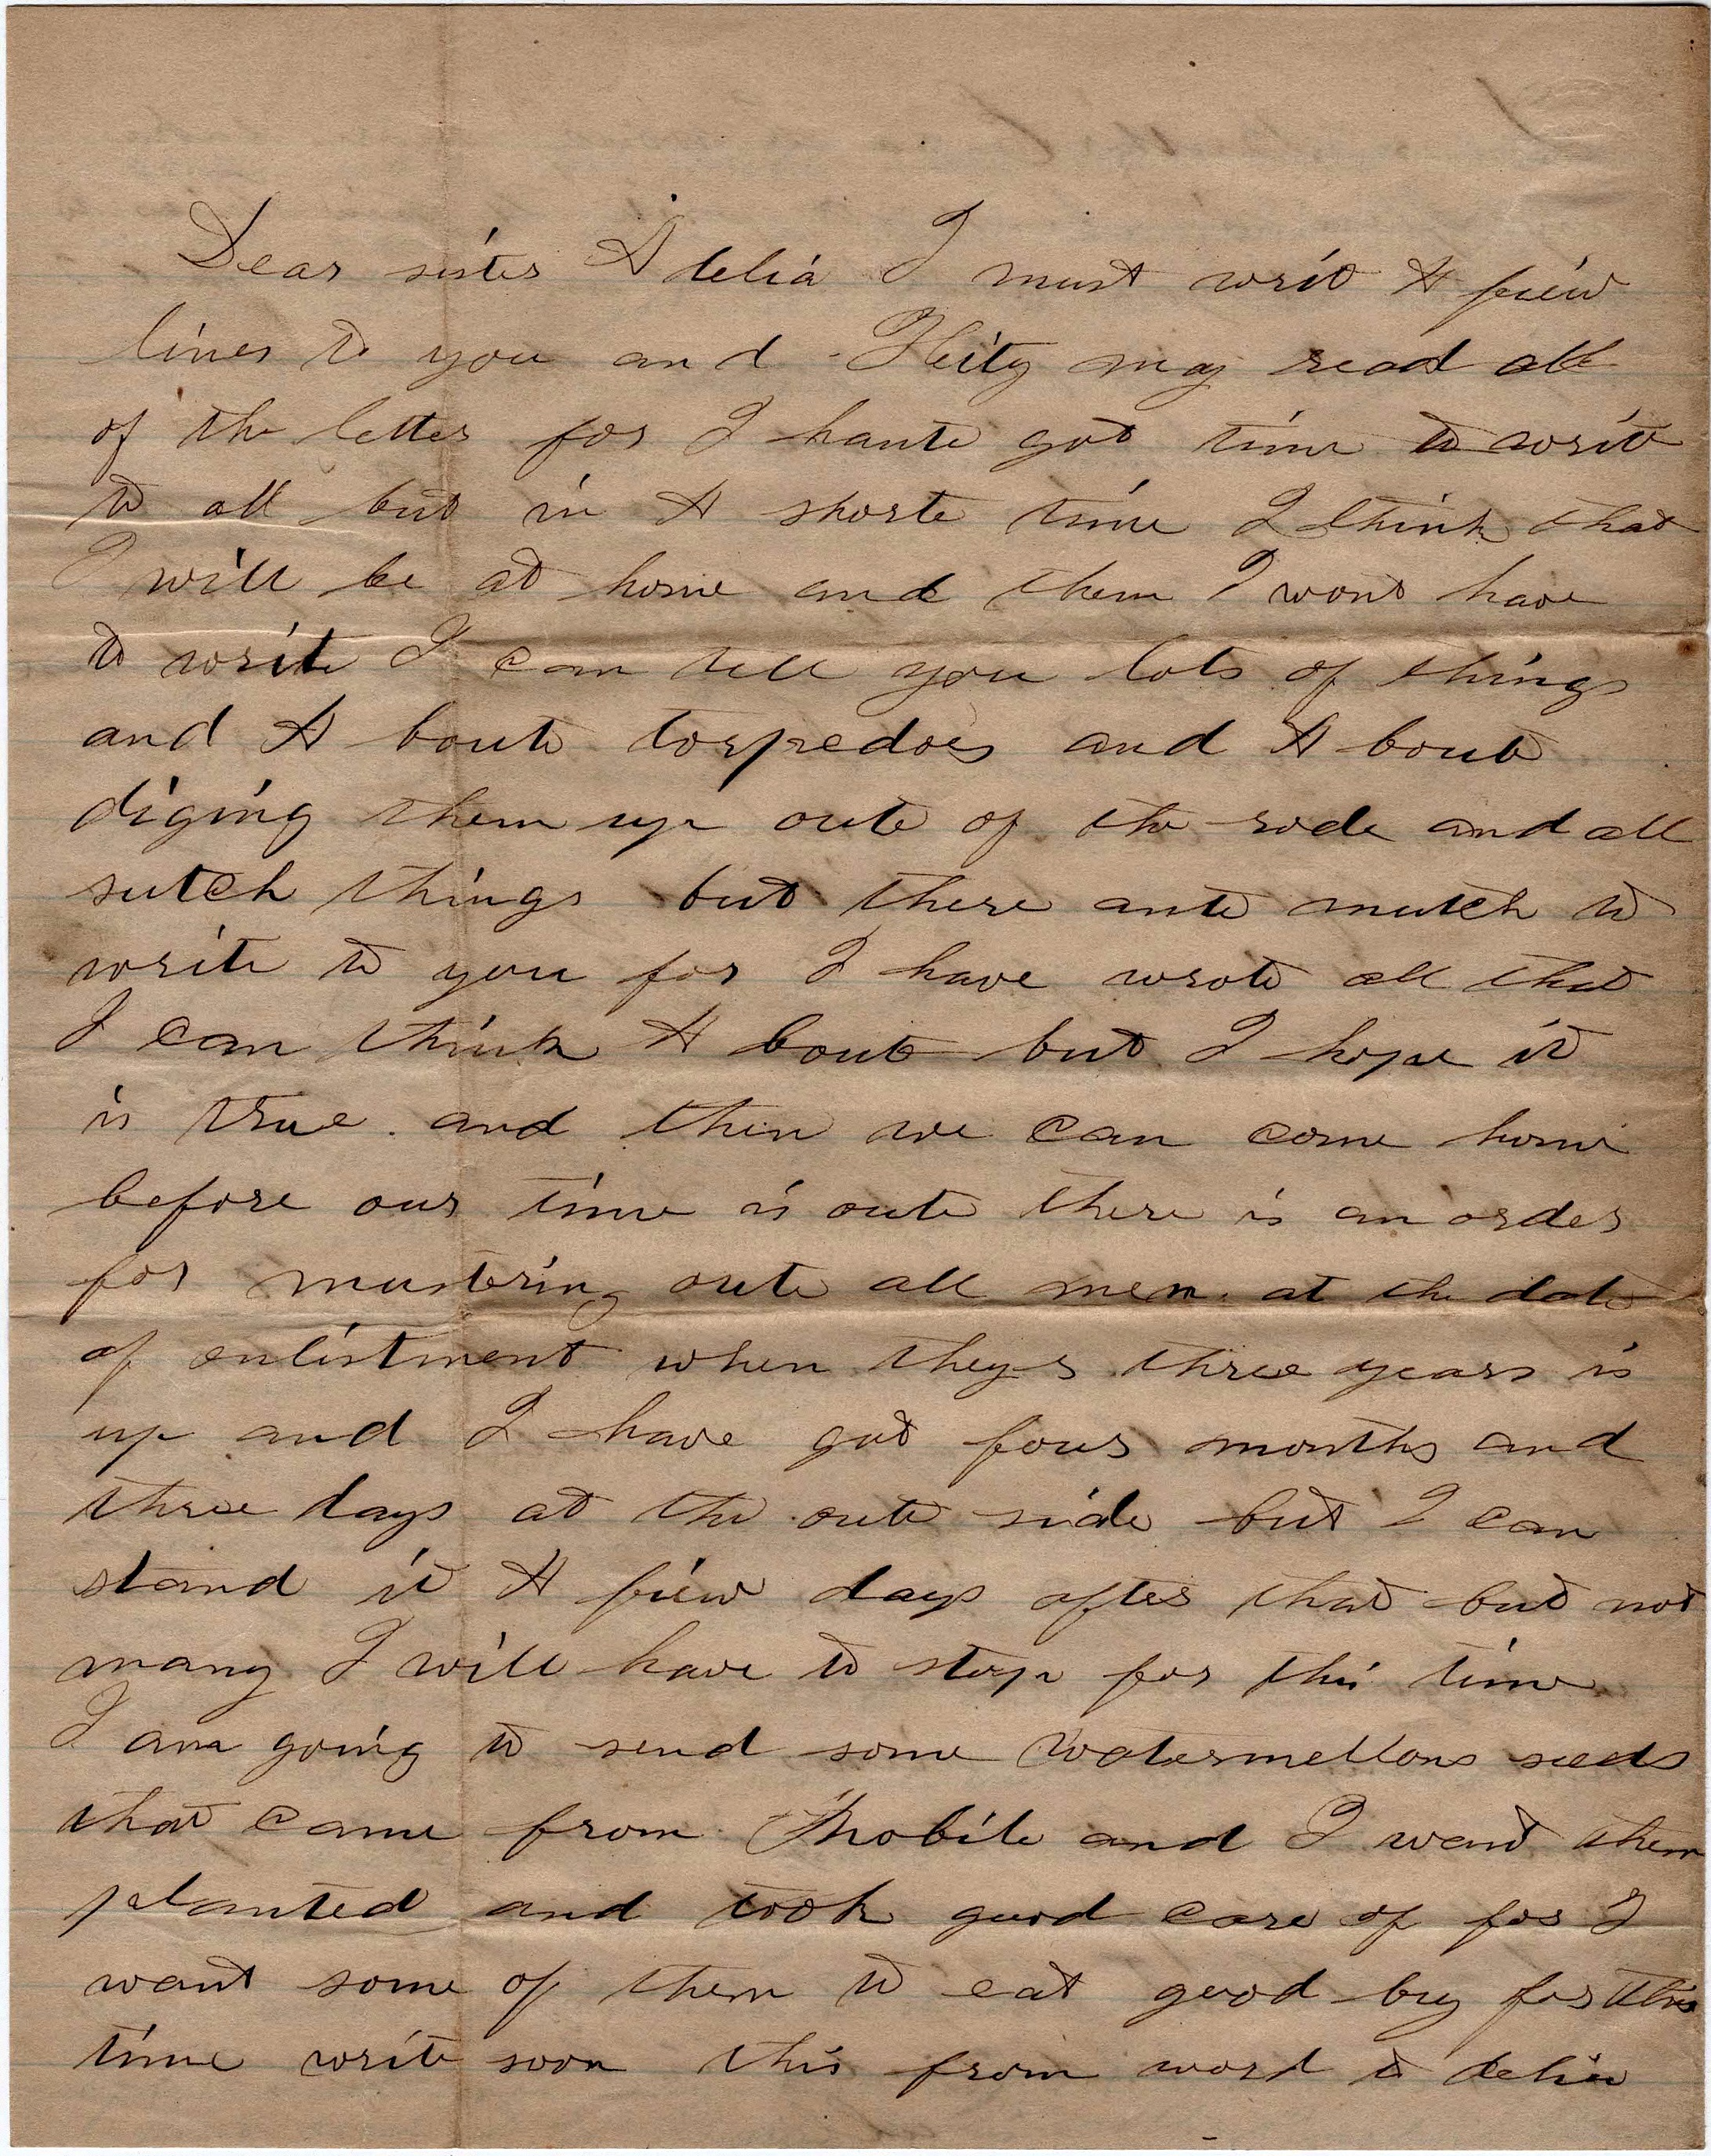 Dear sister A delia I must writ A fiew
lines to you and Heity may read all
of the letter for I haute got time to writ
to all but in A shorte time I think that
I will be at home and them I wont have
to write I can tell you lots of things
and A boute torpedoes and A bout
diging them up oute of the rode and all
sutch things but there ante mutch to
write to you for I have wrote all that
I can think A bout but I hope it
is true and then we can come home
before our time is oute there is an order
for mustering oute all men at the date
of enlistment when theyr three years is
up and I have got four months and
three days at the oute side but I can
stand it A fiew days after that but not
many I will have to stop for this time
I am going to send some watermellons seeds
that came from Mobile and I want them
planted and took good care of for I
want some of them to eat good by for this
time write soon this from word to delia